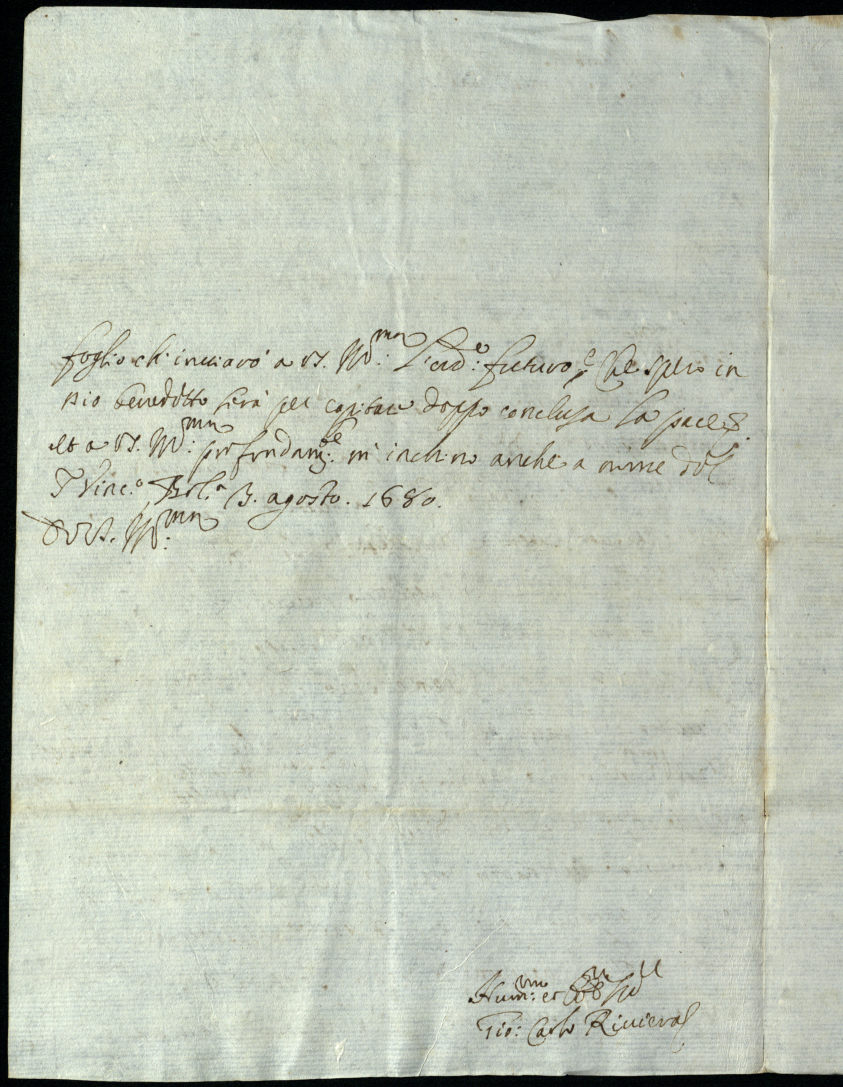 foglio ch'inuiarò a VS. Ill.ma l'ord.o futuro, che spero in
Dio benedetto serà per capitare doppo conclusa la pace
et a VS. Ill.ma profondam.te m'inchino anche a nome del
S.r Vinc.o Bol.a 3. agosto. 1680.
D VS. Ill.ma
Hum.mo et Obb.mo Ser.
Gio: Carlo Riuiera